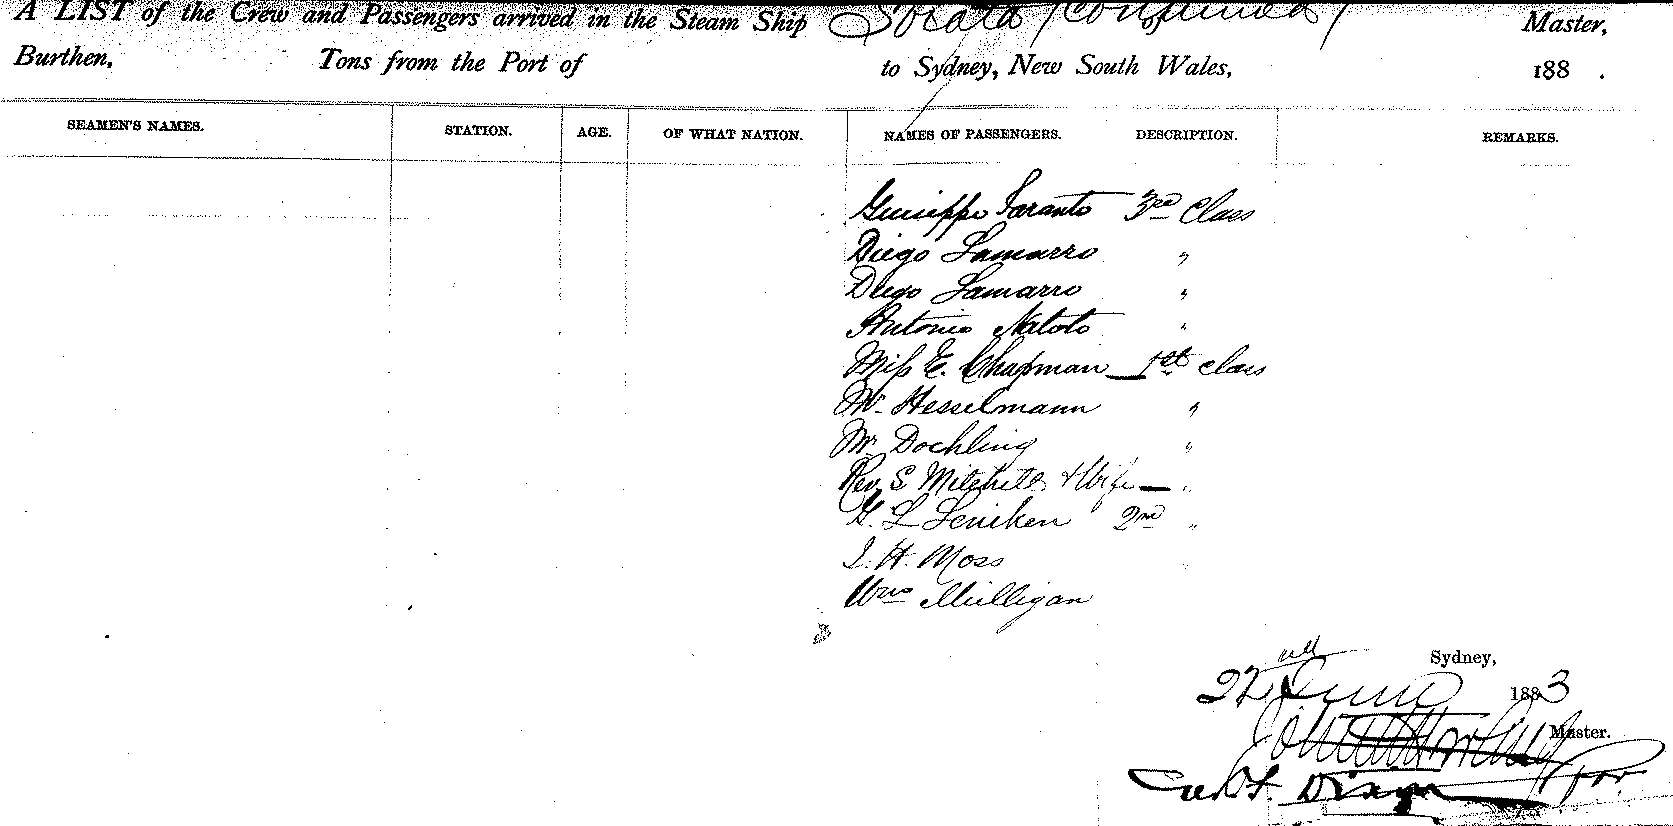 A LIST of the Crew and Passengers arrived in the Steam Ship Sorata (Continued) of Master,
Burthen, Tons from the Port of to Sydney, New South Wales, 188 .
SEAMEN'S NAMES. STATION. AGE. OF WHAT NATION. NAMES OF PASSENGERS. DESCRIPTION. REMARKS.
Giuseppe Taranto 3rd Class
Diego Lamarro "
Diego Lamarro "
Antonio Natoto "
Miss E. Chapman 1st class
Mr. Hesselmann "
Mr. Dochling "
Rev. S. Mitchell & Wife "
G. L Leniken 2nd "
J. H. Moss
Wm Milligan
Sydney,
22nd June 1883
Master.
Capt. Dixon for